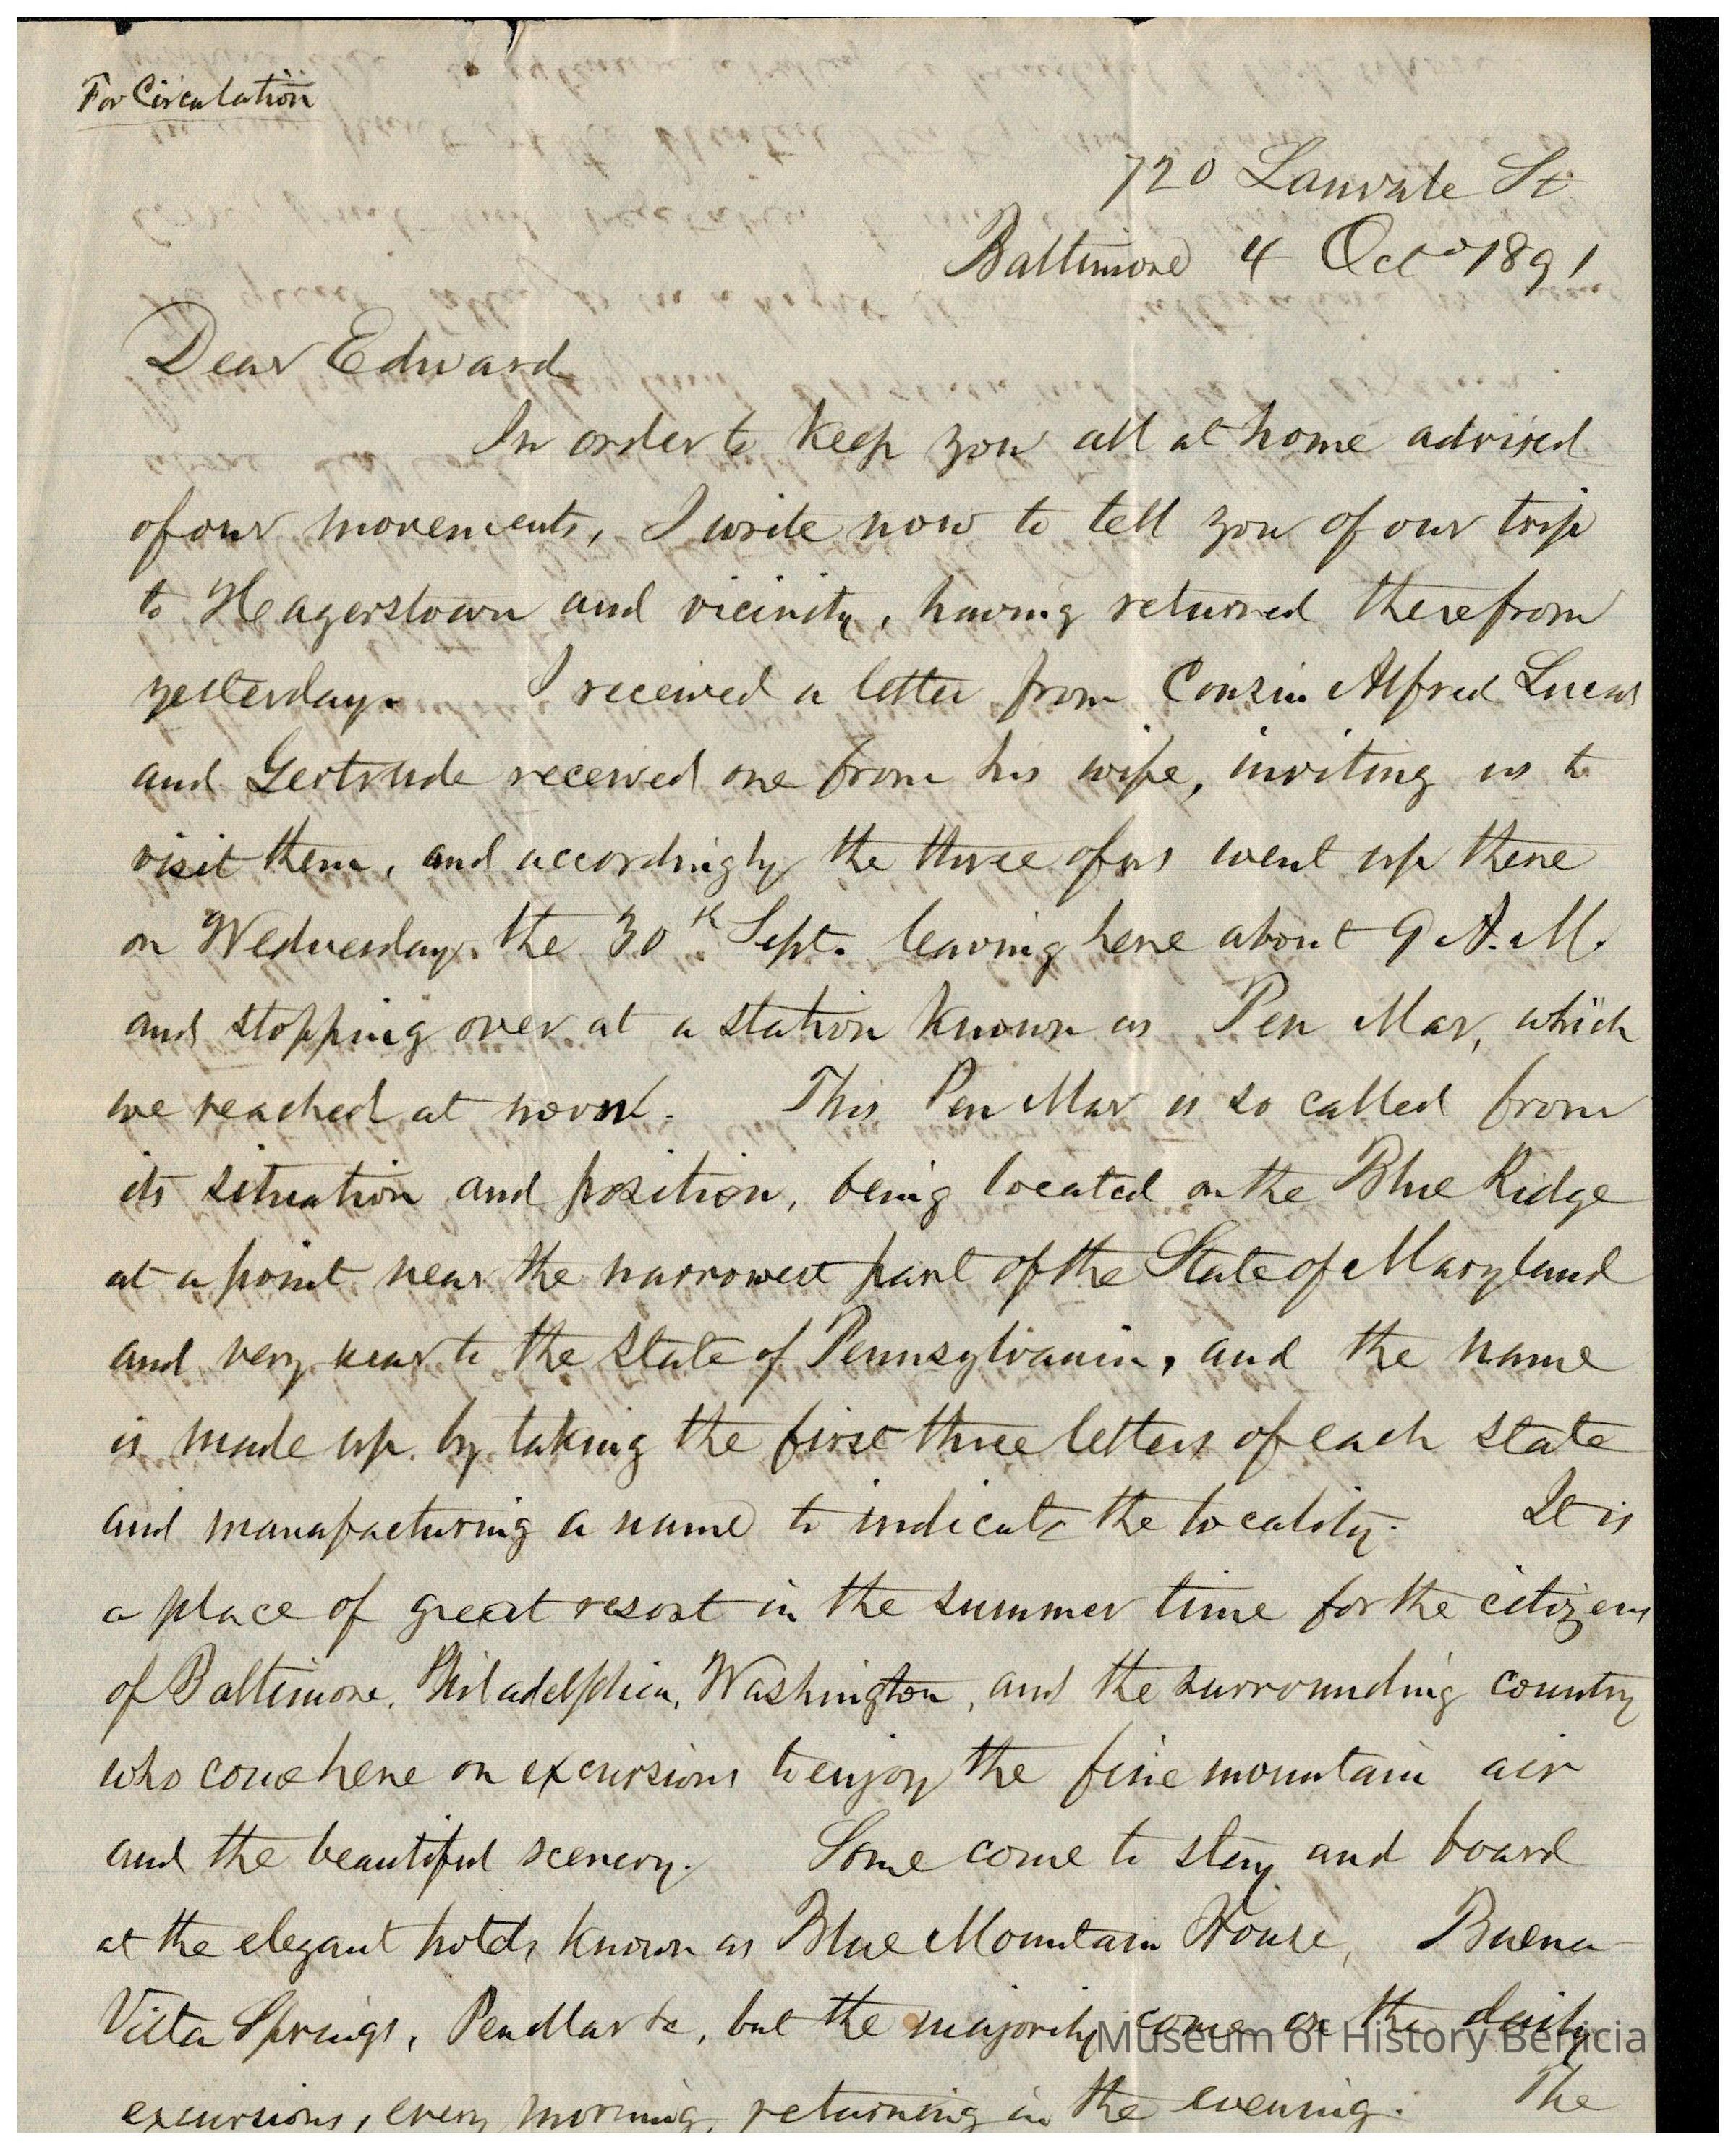 For Circulation
720 Lanvale St
Baltimore 4 Oct 1891
Dear Edward
In order to keep you all at home advised
of our movements, I write now to tell you of our trip
to Heagerstown and vicinity, having returned therefrom
yesterday. I received a letter from Cousin Alfred Lucas
and Gertrude received one from his wife, inviting us to
visit them, and accordingly the three of us went up there
on Wednesday, the 30th Sept. leaving here about 9 A.M.
and stopping over at a station known as Pen Mar, which
we reached at noon. This Pen Mar is so called from
its situation and position, being located on the Blue Ridge
at a point near the narrowest part of the State of Maryland
and very near to the State of Pennsylvania, and the name
is made up by taking the first three letters of each state
and manufacturing a name to indicate the locality. It is
a place of great resort in the summer time for the citizens
of Baltimore, Philadelphia, Washington, and the surrounding country
who come here on excursions to enjoy the fine mountain air
and the beautiful scenery. Some come to stay and board
at the elegant hotels known as Blue Mountain House, Buena
Vista Springs, Pen Mar &c, but the majority come on the daily
excursions, every morning, returning in the evening. The
Museum of History Benicia